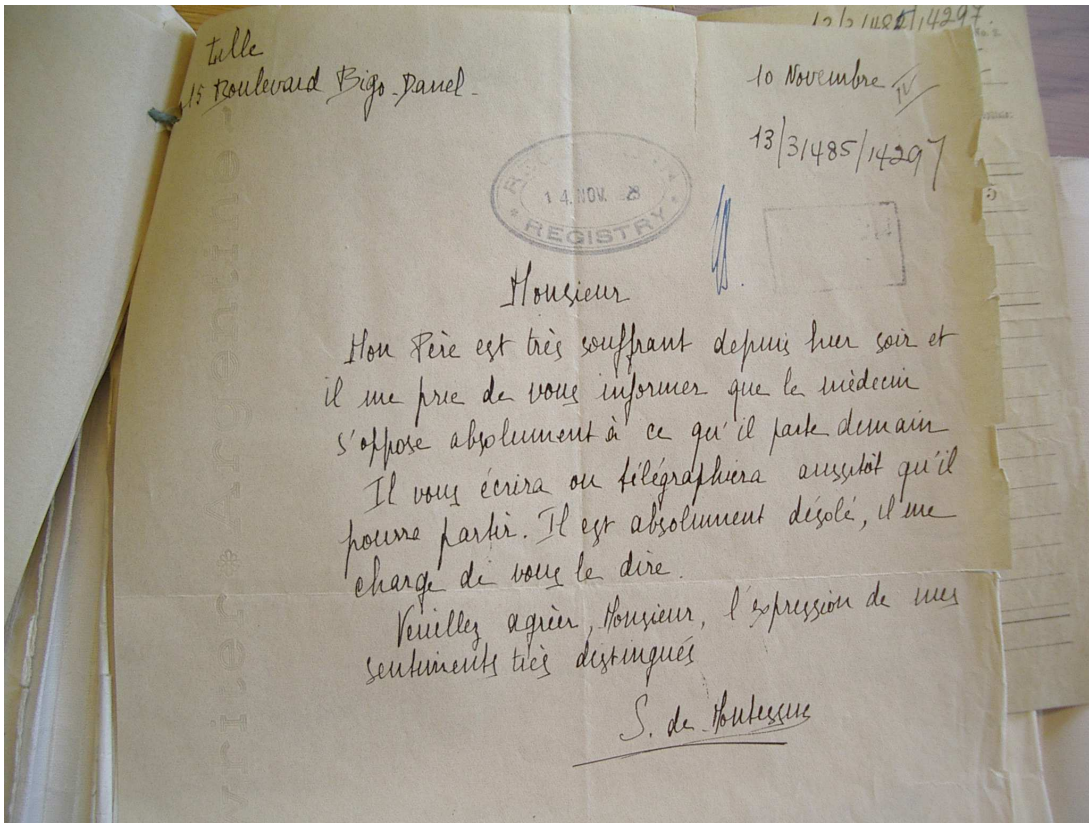 13/31485/14297
Lille
15 Boulevard Bigo-Danel-
10 Novembre
13/31485/14297
14 NOV. 28
REGISTRY
Monsieur
Mon Père est très souffrant depuis hier soir et
il me prie de vous informer que le mèdecin
s'oppose absolument à ce qu'il parte demain
Il vous écrira ou télégraphiera aussitôt qu'il
pourra partir. Il est absolument désolé, il me
charge de vous le dire.
Veuillez agréer, Monsieur, l'expression de mes
sentiments très distingués
S. de Montessus